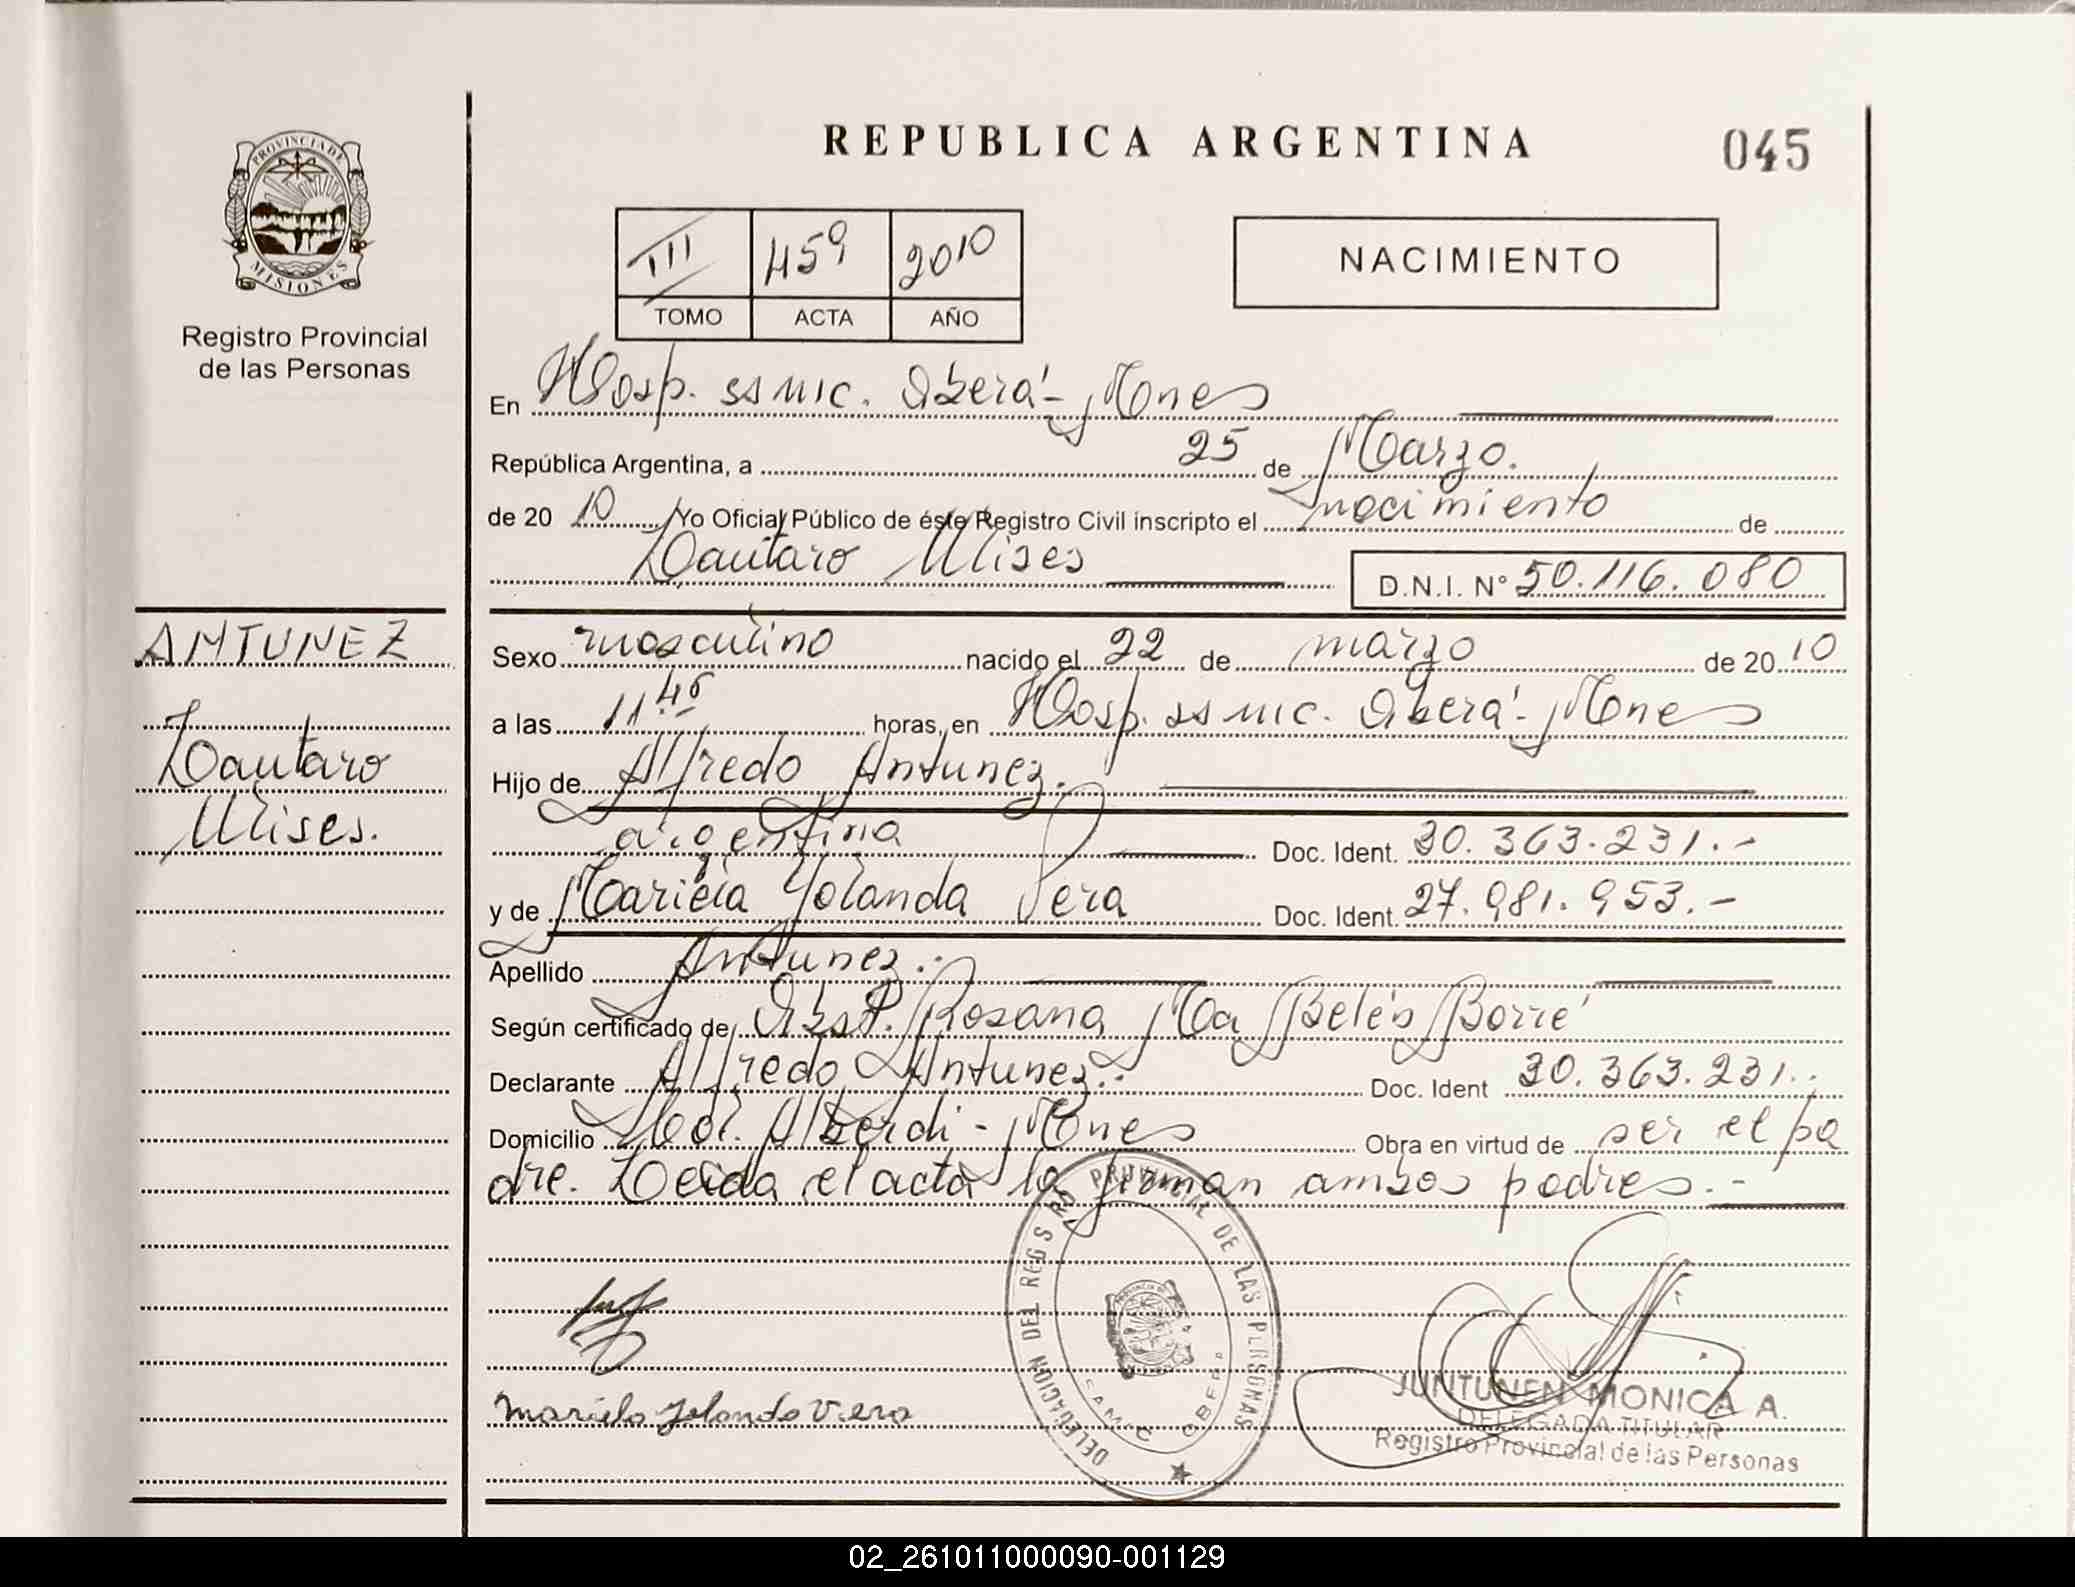 REPUBLICA ARGENTINA
045
PROVINCIA DE
MISIONES
Registro Provincial
de las Personas
III 459 2010
TOMO ACTA AÑO
NACIMIENTO
En Hosp. ss mic. Oberá - Mnes
República Argentina, a 25 de Marzo.
de 20 10 Yo Oficial Público de éste Registro Civil inscripto el nacimiento de
Lautaro Ulises
D.N.I. N° 50.116.080
ANTUNEZ
Lautaro
Ulises.
Sexo masculino nacido el 22 de marzo de 20 10
a las 11 45 horas, en Hosp. ss mic. Oberá - Mnes
Hijo de Alfredo Antunez.
argentina Doc. Ident. 30.363.231.-
y de Mariela Yolanda Vera Doc. Ident. 27.981.953.-
Apellido Antunez.
Según certificado de Obst. Rosana Ma Belén Borré
Declarante Alfredo Antunez. Doc. Ident 30.363.231.
Domicilio Alberdi - Mnes Obra en virtud de ser el pa
dre. Leida el acta la firman ambos padres.-
DELEGACION DEL REGISTRO PROVINCIAL DE LAS PERSONAS
SAMIC OBERA
Mariela Yolanda Vera
JUNTUNEN MONICA A.
DELEGADA TITULAR
Registro Provincial de las Personas
02_261011000090-001129